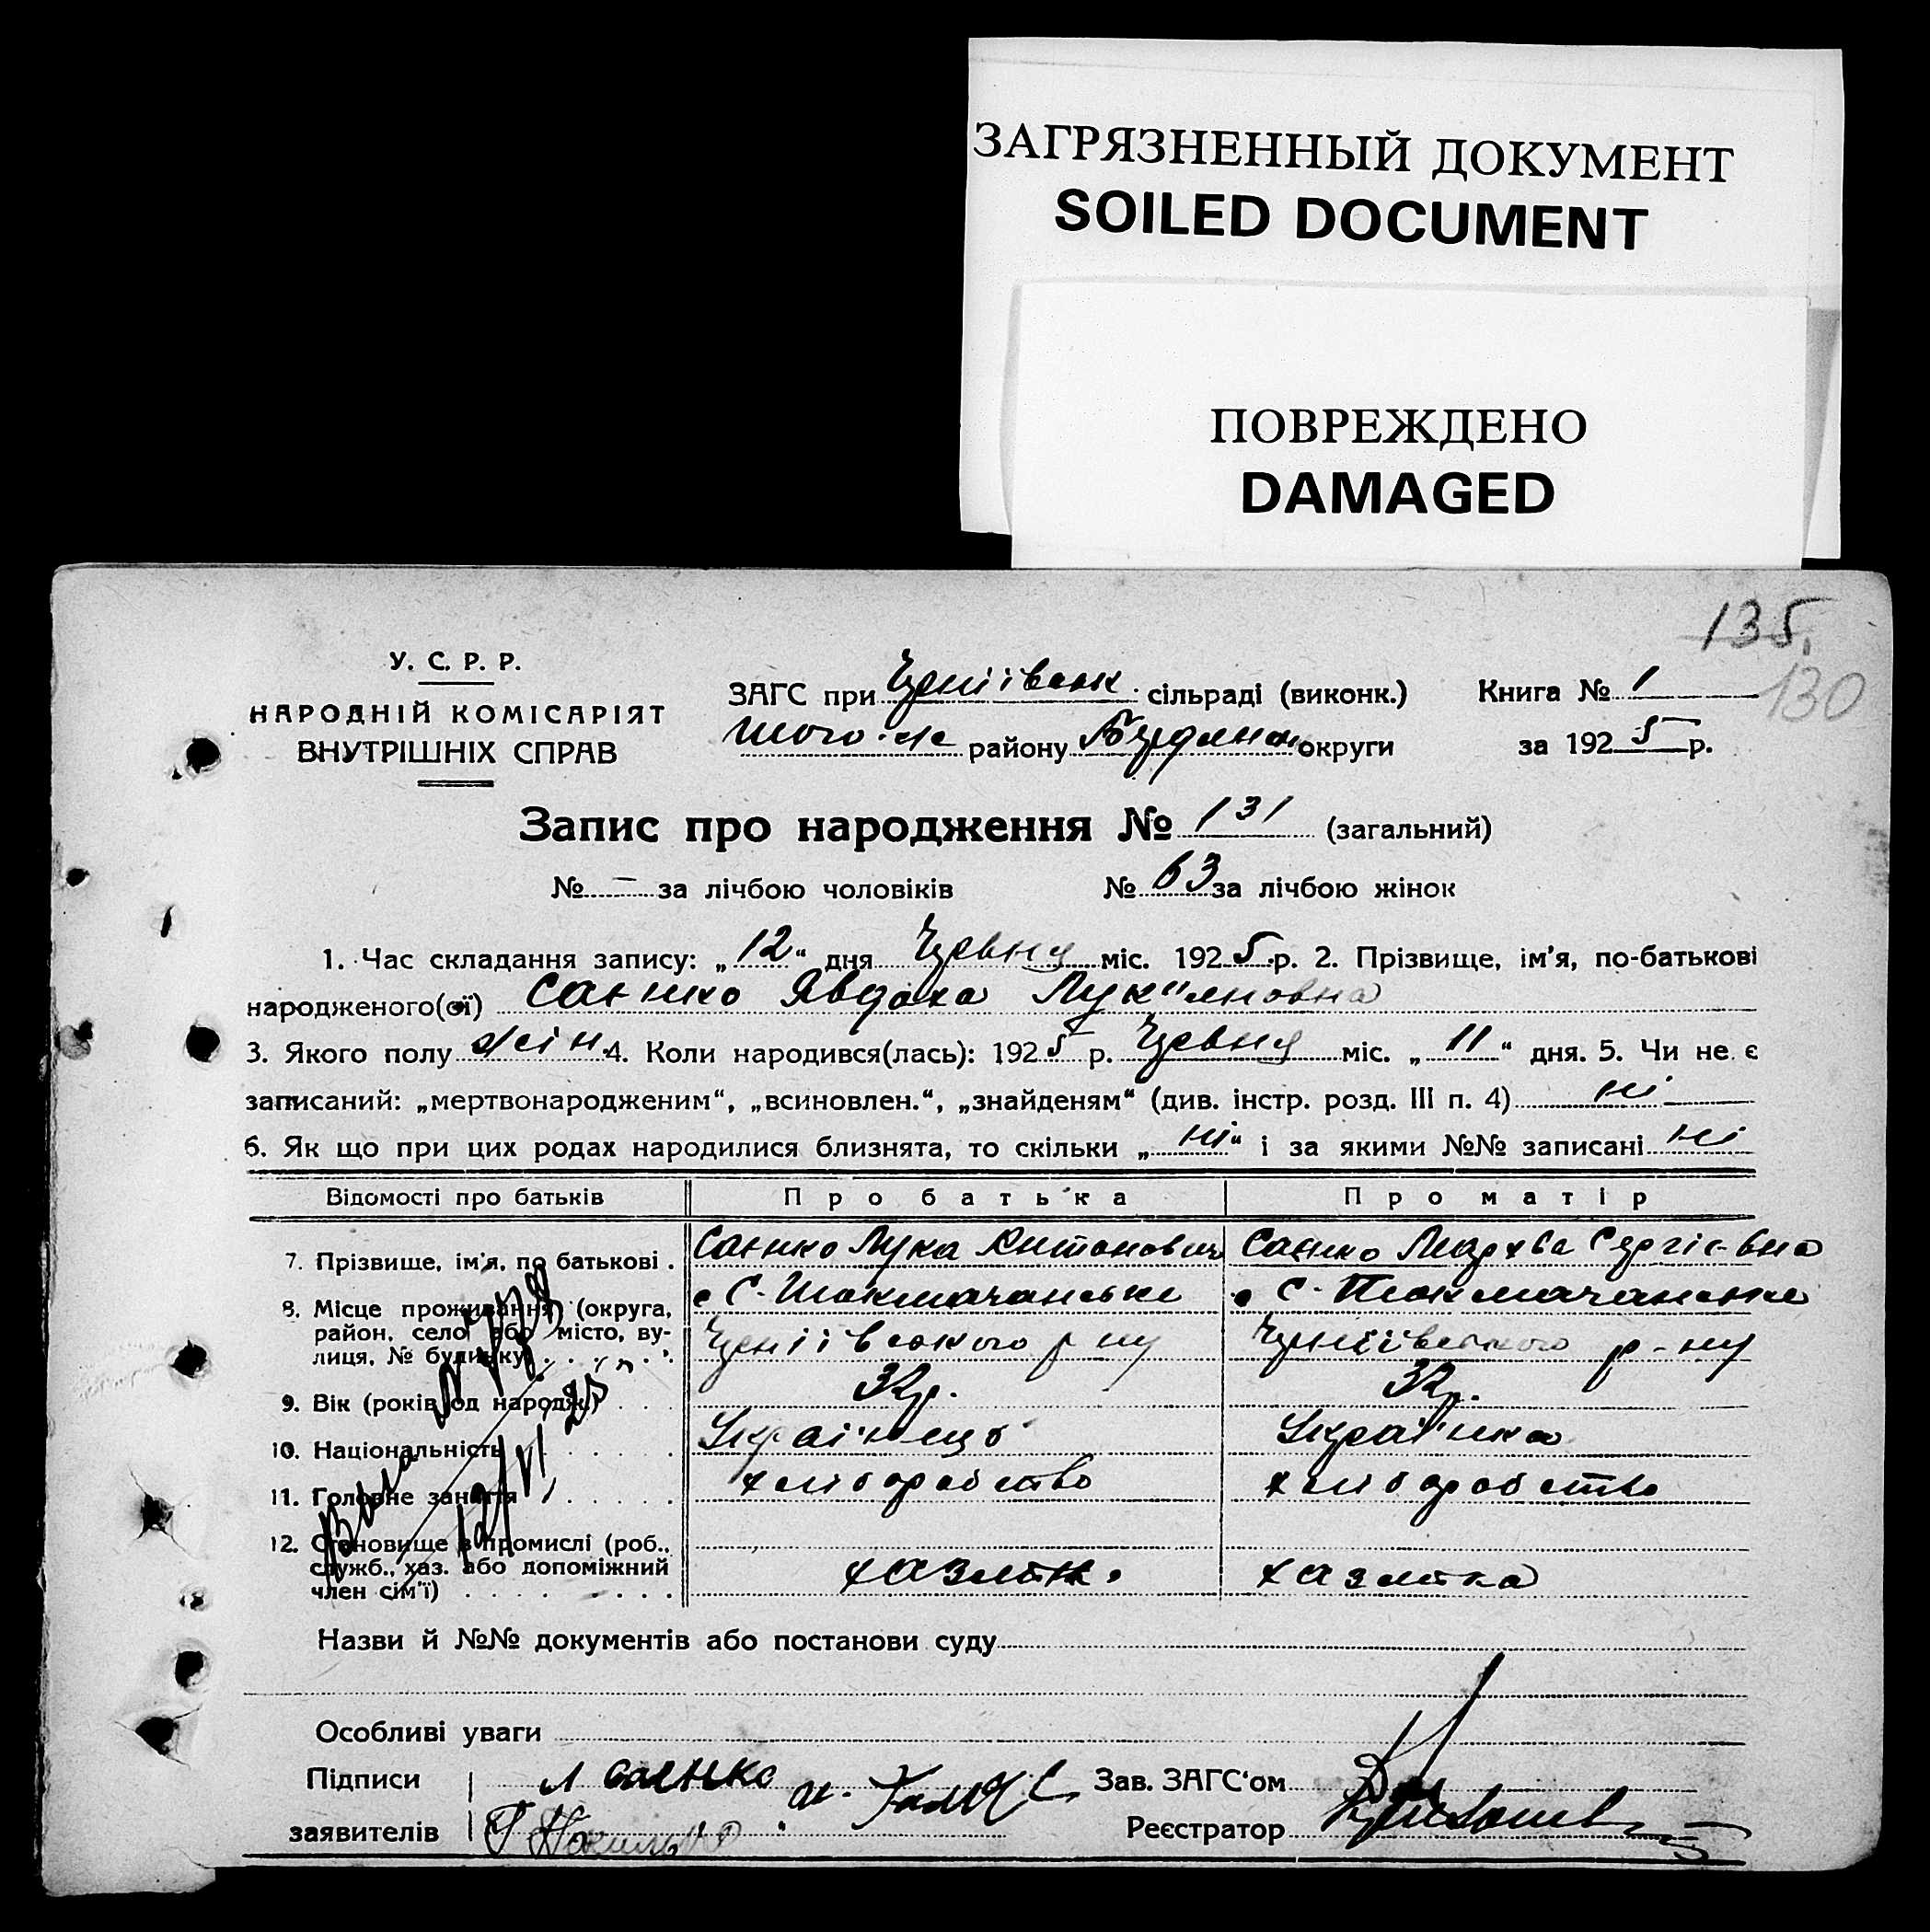 ЗАГРЯЗНЕННЫЙ ДОКУМЕНТ
SOILED DOCUMENT
ПОВРЕЖДЕНО
DAMAGED
135.
130
У. С. Р. Р.
НАРОДНІЙ КОМІСАРІЯТ
ВНУТРІШНІХ СПРАВ
ЗАГС при сільраді (виконк.)
району округи
Книга № 1
за 1925 р.
Запис про народження № 131 (загальний)
№ – за лічбою чоловіків № 63 за лічбою жінок
1. Час складання запису: „12“ дня Червня міс. 1925 р. 2. Прізвище, ім'я, по-батькові
народженого(ої) Саенко Явдоха Лук'яновна
3. Якого полу жін. 4. Коли народився(лась): 1925 р. Червня міс. „11“ дня. 5. Чи не є
записаний: „мертвонародженим“, „всиновлен.“, „знайденям“ (див. інстр. розд. III п. 4) ні
6. Як що при цих родах народилися близнята, то скільки „ні“ і за якими №№ записані ні
Відомості про батьків Про батька Про матір
7. Прізвище, ім'я, по батькові . Саенко Лука Антонович Саенко Мархва Сергіевна
8. Місце проживання (округа, с. Токмачанське с. Токмачанське
район, село або місто, ву-
лиця, № будинку) . . . . . р-ну р-ну
9. Вік (років од народж.) . . . 32 р. 32 р.
10. Національність . . . . . Українець Українка
11. Головне заняття . . . . . хліборобство хліборобство
12. Становище в промислі (роб.,
служб., хаз. або допоміжний
член сім'ї) . . . . . . . . . хазяїн. хазяйка
12/VI 25
Назви й №№ документів або постанови суду
Особливі уваги
Підписи Л Саенко Зав. ЗАГС'ом
заявителів Реєстратор